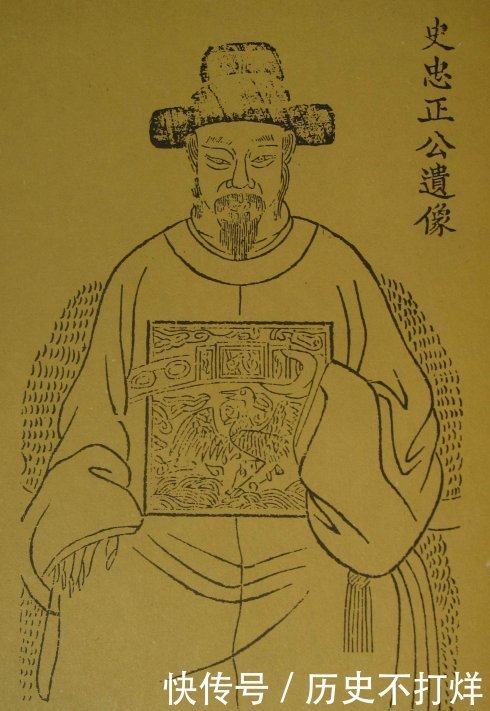 史忠正公遺像
快传号 / 历史不打烊